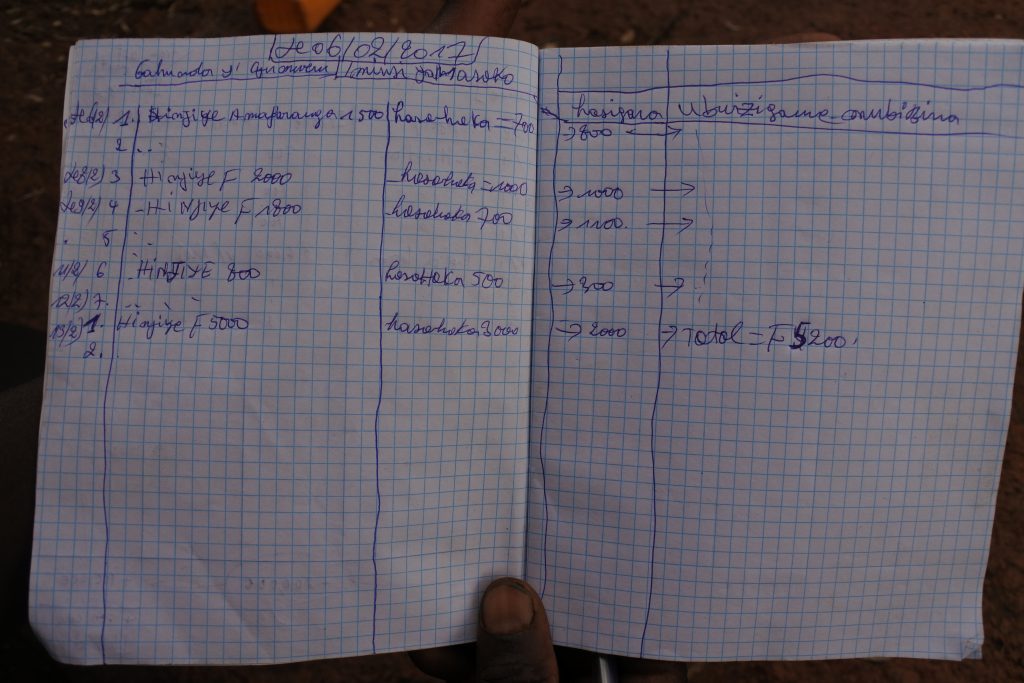 le 06/02/2017
Gahunda y' iminsi yamasoko
1. Hinjiye Amafaranga 1500 hasohoka = 700 hasigara Ubwizigame
→ 800 →
2 . .
3 Hinjiye F 2000 hasohoka = 1000 → 1000 →
4 - Hinjiye F 1800 hasohoka 700 → 1100. →
. 5 . .
11/2) 6 HiNJIYE 800 hasohoka 500 → 300 →
12/2) 7.
13/2) 1. Hinjiye F 5000 hasohoka 3000 → 2000 → Total = F 5200.
2.